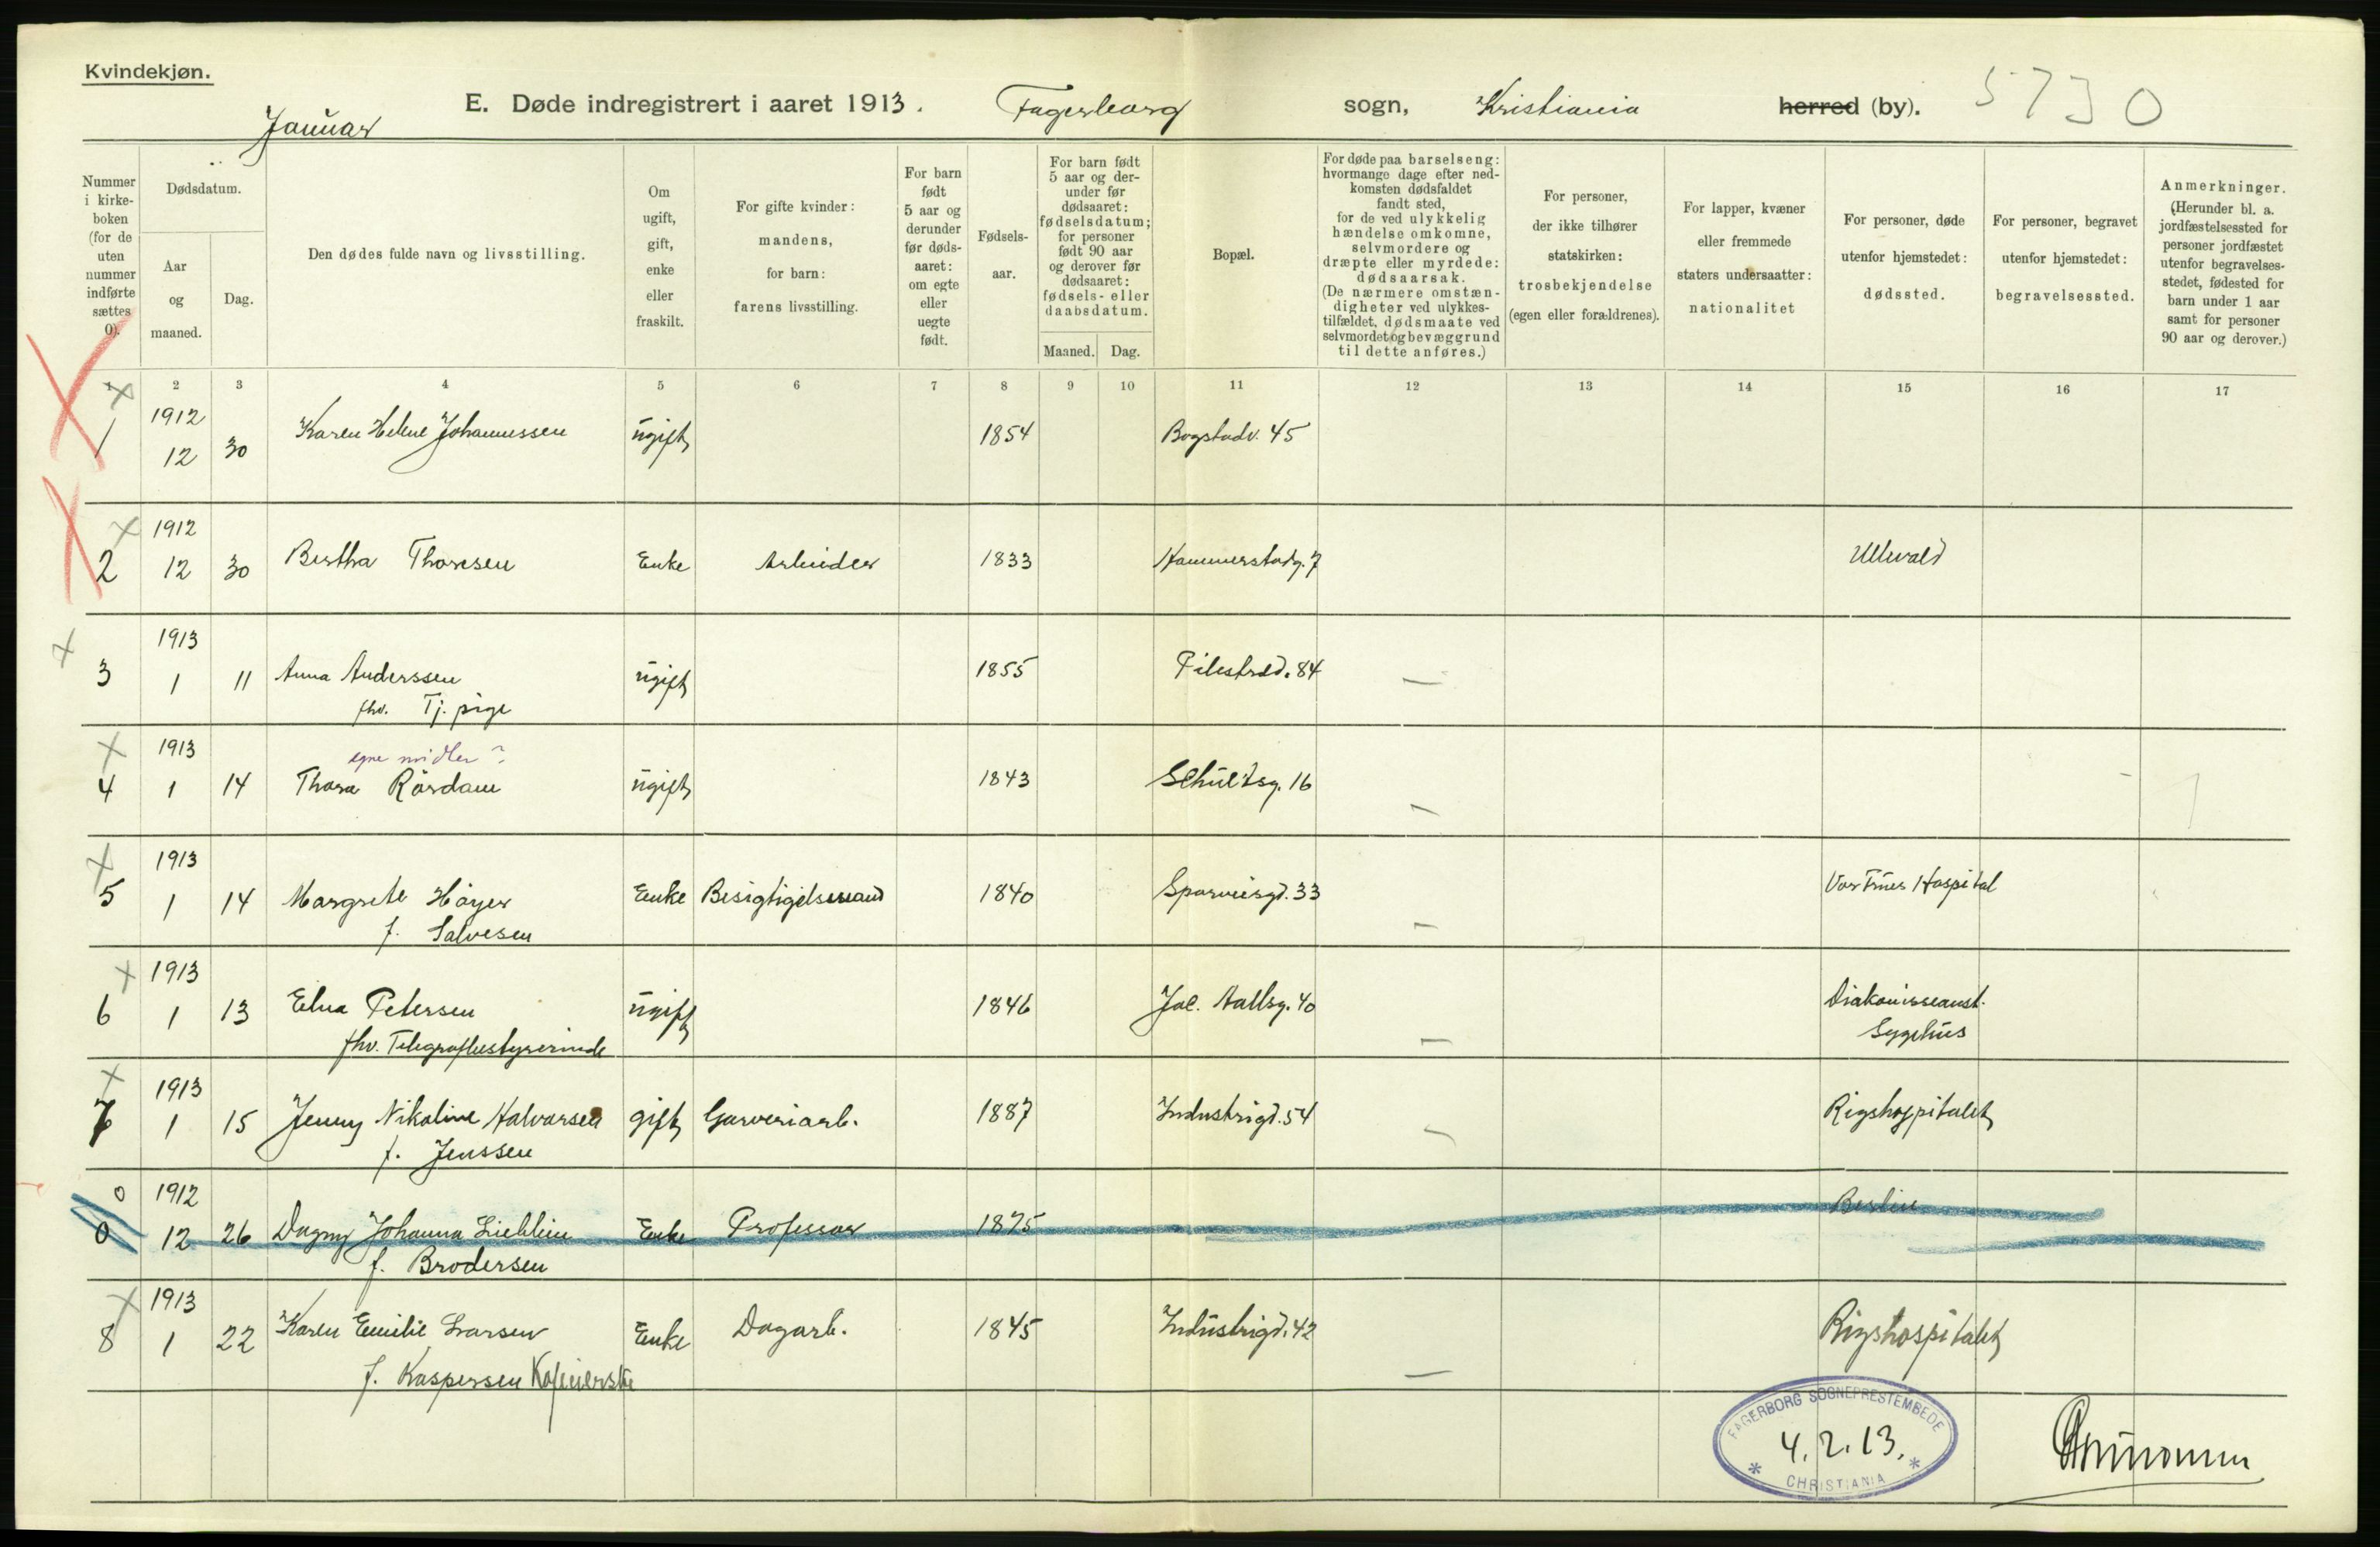 Kvindekjøn.
E. Døde indregistrert i aaret 1913. Fagerborg sogn, Kristiania herred (by). 5730
Januar
Nummer i kirke-boken (for de uten nummer indførte sættes 0).
Dødsdatum.
Aar og maaned.
Dag.
Den dødes fulde navn og livsstilling.
Om ugift, gift, enke eller fraskilt.
For gifte kvinder: mandens, for barn: farens livsstilling.
For barn født 5 aar og derunder før døds-aaret: om egte eller uegte født.
Fødsels-aar.
For barn født 5 aar og der-under før dødsaaret: fødselsdatum; for personer født 90 aar og derover før dødsaaret: fødsels- eller daabsdatum.
Maaned.
Dag.
Bopæl.
For døde paa barselseng: hvormange dage efter ned-komsten dødsfaldet fandt sted, for de ved ulykkelig hændelse omkomne, selvmordere og dræpte eller myrdede: dødsaarsak. (De nærmere omstæn-digheter ved ulykkes-tilfældet, dødsmaate ved selvmordet og bevæggrund til dette anføres.)
For personer, der ikke tilhører statskirken: trosbekjendelse (egen eller forældrenes).
For lapper, kvæner eller fremmede staters undersaatter: nationalitet
For personer, døde utenfor hjemstedet: dødssted.
For personer, begravet utenfor hjemstedet: begravelsessted.
Anmerkninger. (Herunder bl. a. jordfæstelsessted for personer jordfæstet utenfor begravelses-stedet, fødested for barn under 1 aar samt for personer 90 aar og derover.)
1 2 3 4 5 6 7 8 9 10 11 12 13 14 15 16 17
1912
1 12 30 Karen Helene Johannessen ugift 1854 Bogstadv. 45
1912
2 12 30 Bertha Thoresen Enke Arbeider 1833 Hammerstadg. 7 Ullevald
1913
3 1 11 Anna Anderssen ugift 1855 Pilestræd. 84 —
fhv. Tj. pige
1913 egne midler?
4 1 14 Thora Rördam ugift 1843 Schultsg. 16 —
1913
5 1 14 Margrete Höyer Enke Besigtigelsesmand 1840 Sporveisgd. 33 — Vor Frues Hospital
f. Salvesen
1913
6 1 13 Elna Petersen ugift 1846 Jac. Aallsg. 40 — Diakonisseanst.
fhv. Telegrafbestyrerinde Sygehus
1913
7 1 15 Jenny Nikoline Halvorsen gift Garveriarb. 1887 Industrigd. 54 — Rigshospitalet
f. Jenssen
0 1912
0 12 26 Dagny Johanna Lieblein Enke Professor 1875 Berlin
f. Brodersen
1913
8 1 22 Karen Emilie Larsen Enke Dagarb. 1845 Industrigd. 42 — Rigshospitalet
f. Kaspersen
FAGERBORG SOGNEPRESTEMBEDE
4.2.13.
* CHRISTIANIA *